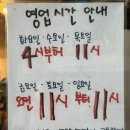 영업시간 안내
화요일·수요일·목요일
4시부터 11시
금요일·토요일·일요일
오전 11시 부터 11시